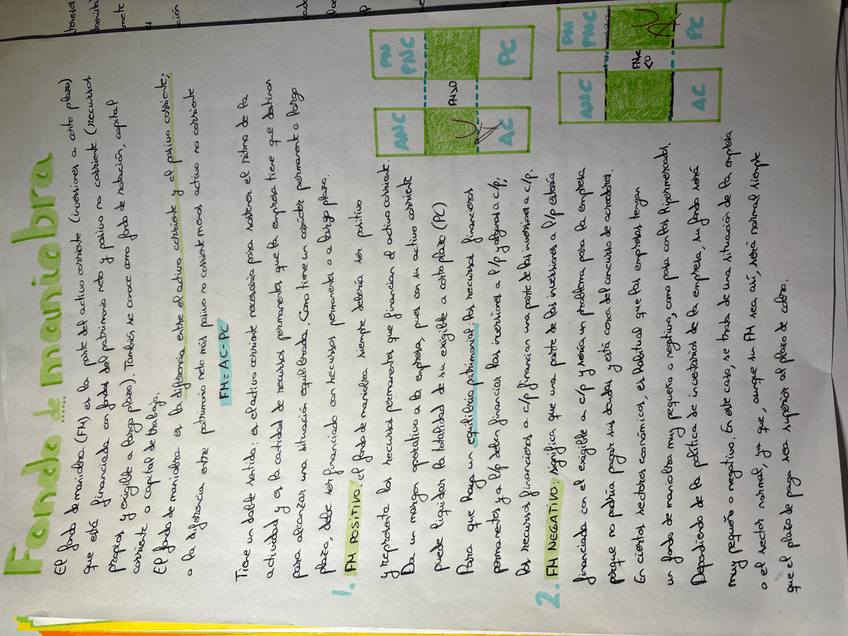 Fondo de maniobra
El fondo de maniobra (FM) es la parte del activo corriente (inversiones a corto plazo)
que está financiada con fondos del patrimonio neto y pasivo no corriente (recursos
propios y exigible a largo plazo). También se conoce como fondo de rotación, capital
corriente o capital de trabajo.
El fondo de maniobra es la diferencia entre el activo corriente y el pasivo corriente;
o la diferencia entre patrimonio neto más pasivo no corriente menos activo no corriente
FM = AC - PC
Tiene un doble sentido: es el activo corriente necesario para sostener el ritmo de la
actividad y es la cantidad de recursos permanentes que la empresa tiene que destinar
para alcanzar una situación equilibrada. Como tiene un carácter permanente o largo
plazo, debe ser financiado con recursos permanentes o a largo plazo.
1. FM POSITIVO: el fondo de maniobra siempre debería ser positivo
y representa los recursos permanentes que financian el activo corriente.
Da un margen operativo a la empresa, pues con su activo corriente
puede liquidar la totalidad de su exigible a corto plazo (PC)
Para que haya un equilibrio patrimonial: los recursos financieros
permanentes y a l/p deben financiar las inversiones a l/p y algunas a c/p;
los recursos financieros a c/p financian una parte de las inversiones a c/p.
ANC
AC
FM>0
PN
PNC
PC
2. FM NEGATIVO: significa que una parte de las inversiones a l/p estaría
financiada con el exigible a c/p y sería un problema para la empresa
porque no podría pagar sus deudas y está cerca del concurso de acreedores.
En ciertos sectores económicos, es habitual que las empresas tengan
un fondo de maniobra muy pequeño o negativo, como pasa con los hipermercados.
Dependiendo de la política de inventarios de la empresa, su fondo será
muy pequeño o negativo. En este caso, se trata de una situación de la empresa
o el sector normal, ya que, aunque su FM sea así, será normal siempre
que el plazo de pago sea superior al plazo de cobro.
ANC
AC
<0
PN
PNC
PC